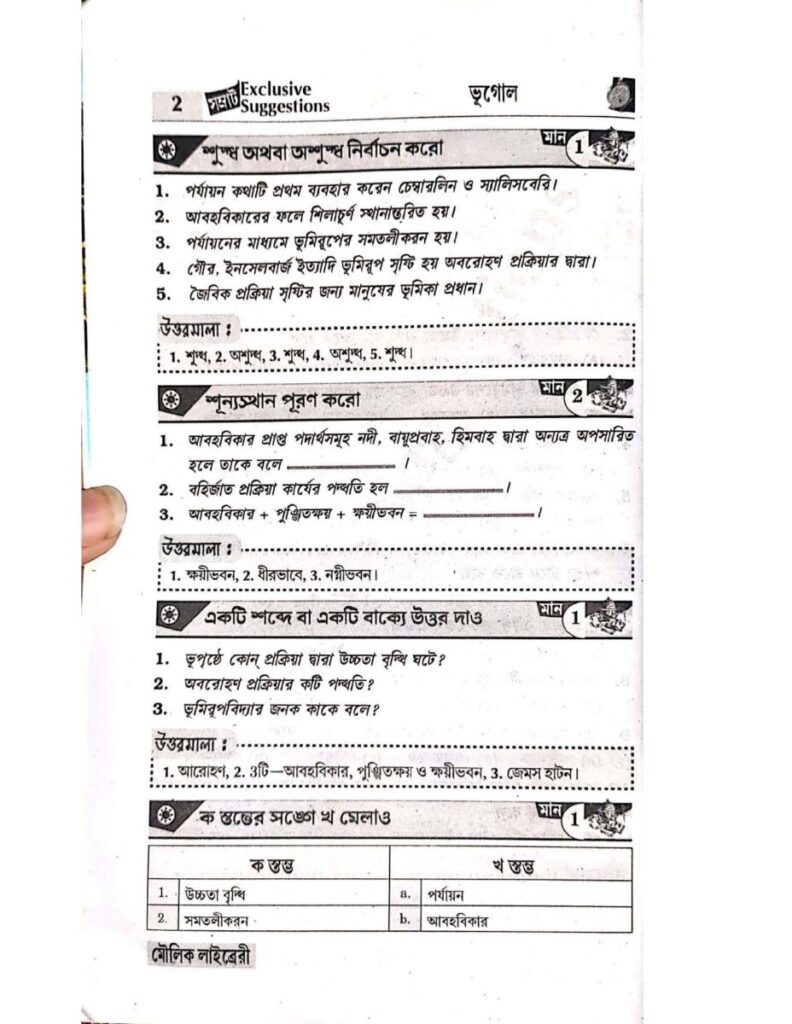 2 সম্রাট Exclusive Suggestions ভূগোল
শুদ্ধ অথবা অশুদ্ধ নির্বাচন করো মান 1
1. পর্যায়ন কথাটি প্রথম ব্যবহার করেন চেম্বারলিন ও স্যালিসবেরি।
2. আবহবিকারের ফলে শিলাচূর্ণ স্থানান্তরিত হয়।
3. পর্যায়নের মাধ্যমে ভূমিরূপের সমতলীকরন হয়।
4. গৌর, ইনসেলবার্জ ইত্যাদি ভূমিরূপ সৃষ্টি হয় অবরোহণ প্রক্রিয়ার দ্বারা।
5. জৈবিক প্রক্রিয়া সৃষ্টির জন্য মানুষের ভূমিকা প্রধান।
উত্তরমালা :
1. শুদ্ধ, 2. অশুদ্ধ, 3. শুদ্ধ, 4. অশুদ্ধ, 5. শুদ্ধ।
শূন্যস্থান পূরণ করো মান 2
1. আবহবিকার প্রাপ্ত পদার্থসমূহ নদী, বায়ুপ্রবাহ, হিমবাহ দ্বারা অন্যত্র অপসারিত
হলে তাকে বলে ________ ।
2. বহির্জাত প্রক্রিয়া কার্যের পদ্ধতি হল ________ ।
3. আবহবিকার + পুঞ্জিতক্ষয় + ক্ষয়ীভবন = ________ ।
উত্তরমালা :
1. ক্ষয়ীভবন, 2. ধীরভাবে, 3. নগ্নীভবন।
একটি শব্দে বা একটি বাক্যে উত্তর দাও মান 1
1. ভূপৃষ্ঠে কোন্ প্রক্রিয়া দ্বারা উচ্চতা বৃদ্ধি ঘটে?
2. অবরোহণ প্রক্রিয়ার কটি পদ্ধতি?
3. ভূমিরূপবিদ্যার জনক কাকে বলে?
উত্তরমালা :
1. আরোহণ, 2. 3টি—আবহবিকার, পুঞ্জিতক্ষয় ও ক্ষয়ীভবন, 3. জেমস হাটন।
ক স্তম্ভের সঙ্গে খ মেলাও মান 1
ক স্তম্ভ খ স্তম্ভ
1. উচ্চতা বৃদ্ধি a. পর্যায়ন
2. সমতলীকরন b. আবহবিকার
মৌলিক লাইব্রেরী